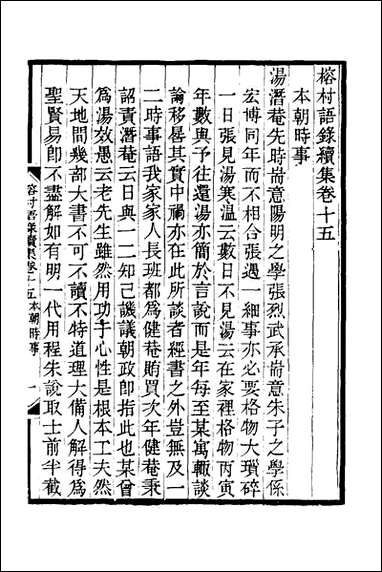 榕村語錄續集卷十五
本朝時事
湯潛菴先時耑意陽明之學張烈武承耑意朱子之學係
宏博同年而不相合張遇一細事亦必要格物大瑣碎
一日張見湯寒溫云數日不見湯云在家裡格物丙寅
年數與予往還湯亦簡於言說而是年每至某寓輙談
論移晷其實中禍亦在此所談者經書之外豈無及一
二時事語我家家人長班都為健菴賄買次年健菴秉
詔責潛菴云日與一二知己譏議朝政卽指此也某曾
為湯效愚云老先生雖然用功于心性是根本工夫然
天地間幾部大書不可不讀不特道理大備人解得為
聖賢易卽不盡解如有明一代用程朱說取士前半截
榕村語錄續集卷十五 本朝時事 一